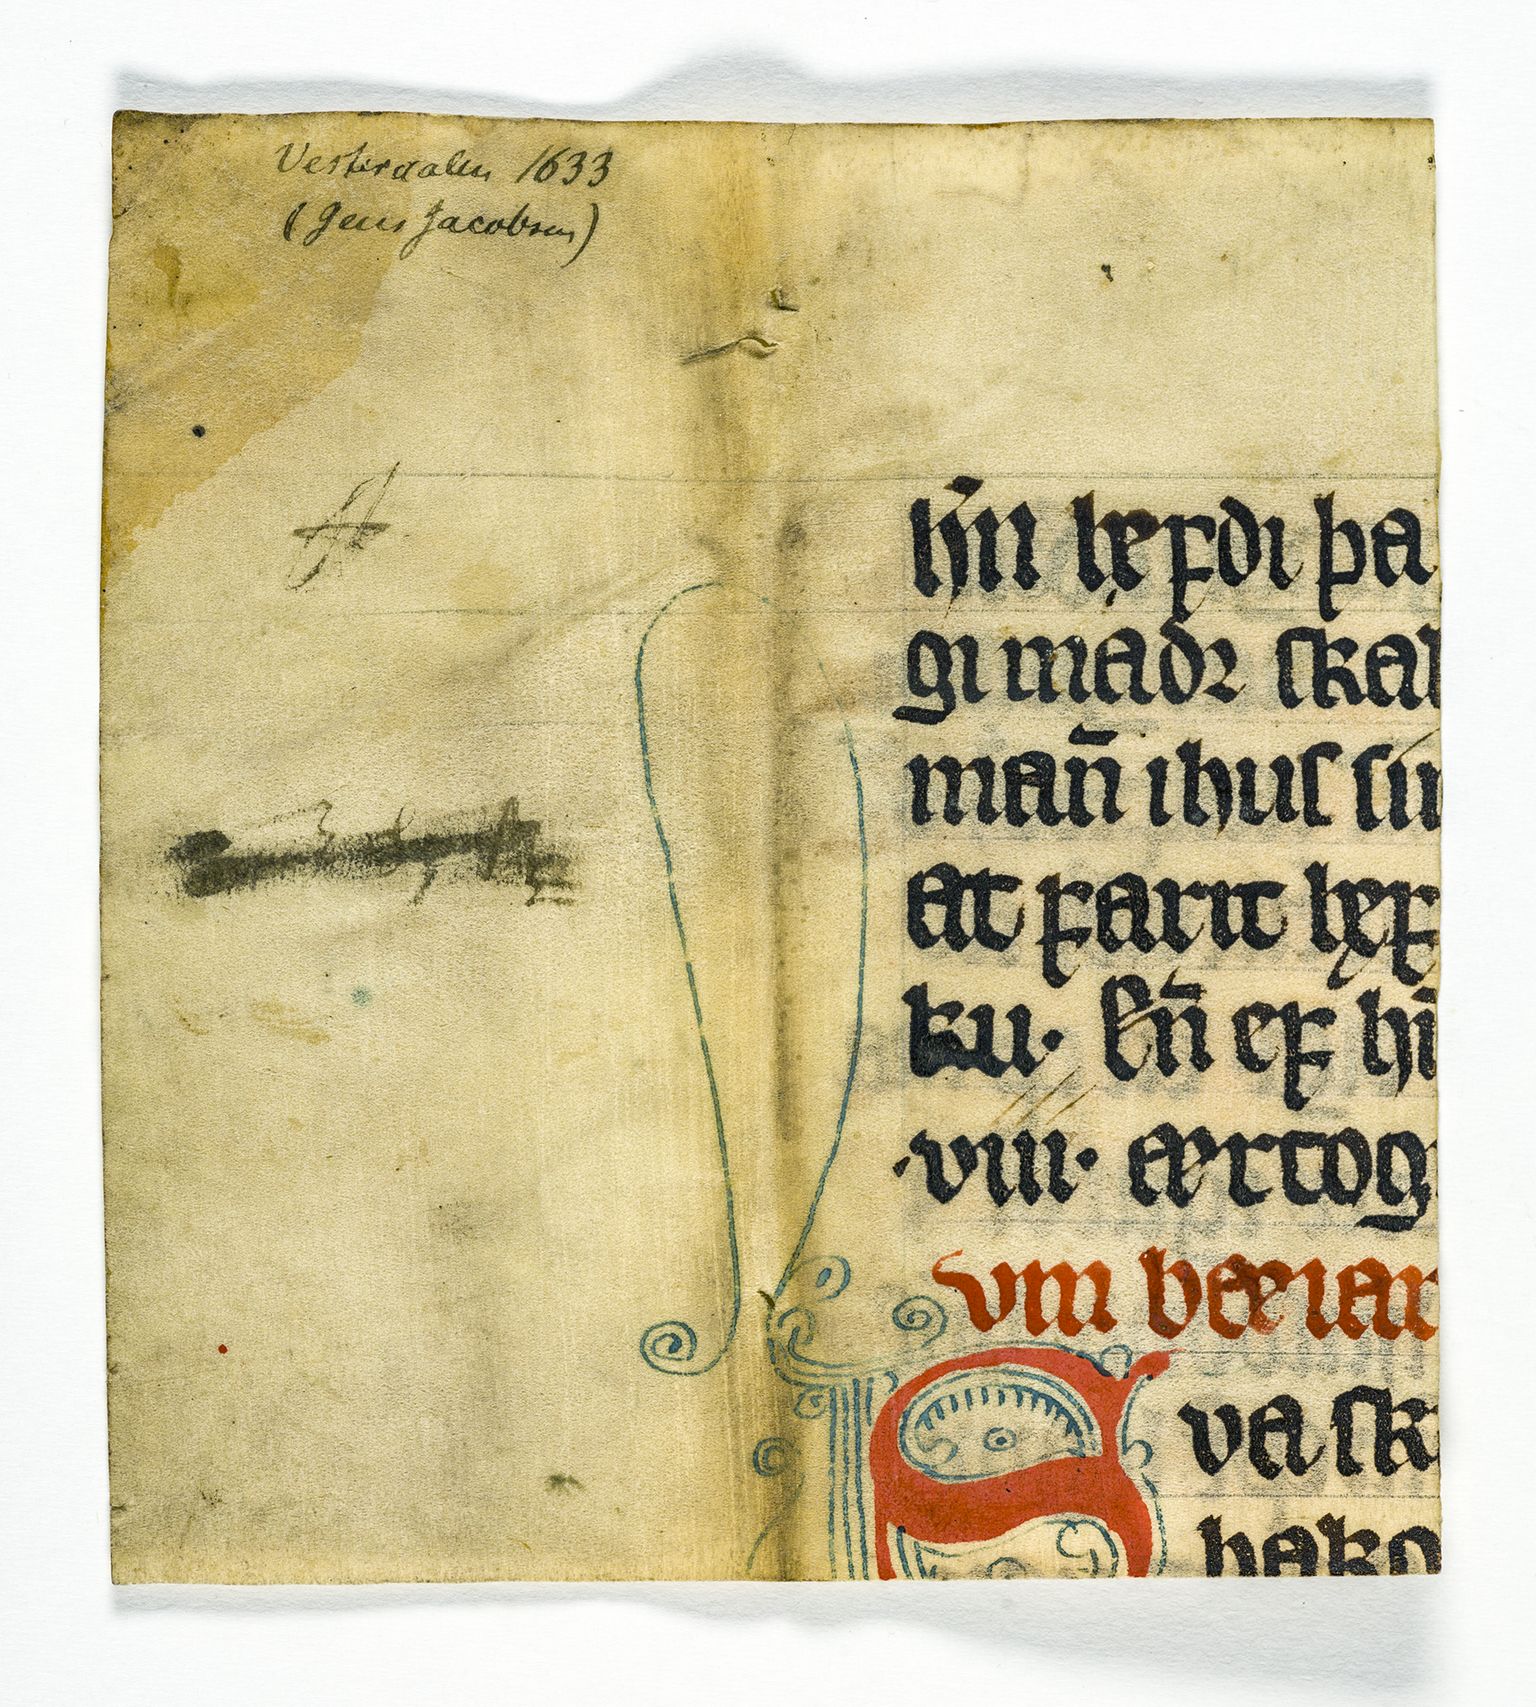 Vesteraalen 1633
(Jens Jacobsen)
A
hm̄ hefdi þa
gi madꝛ skal
man̄ ihus sin
at farit hef
ku. En̄ ef hī
.viii. ærtog
vm beriar
va sk
hako